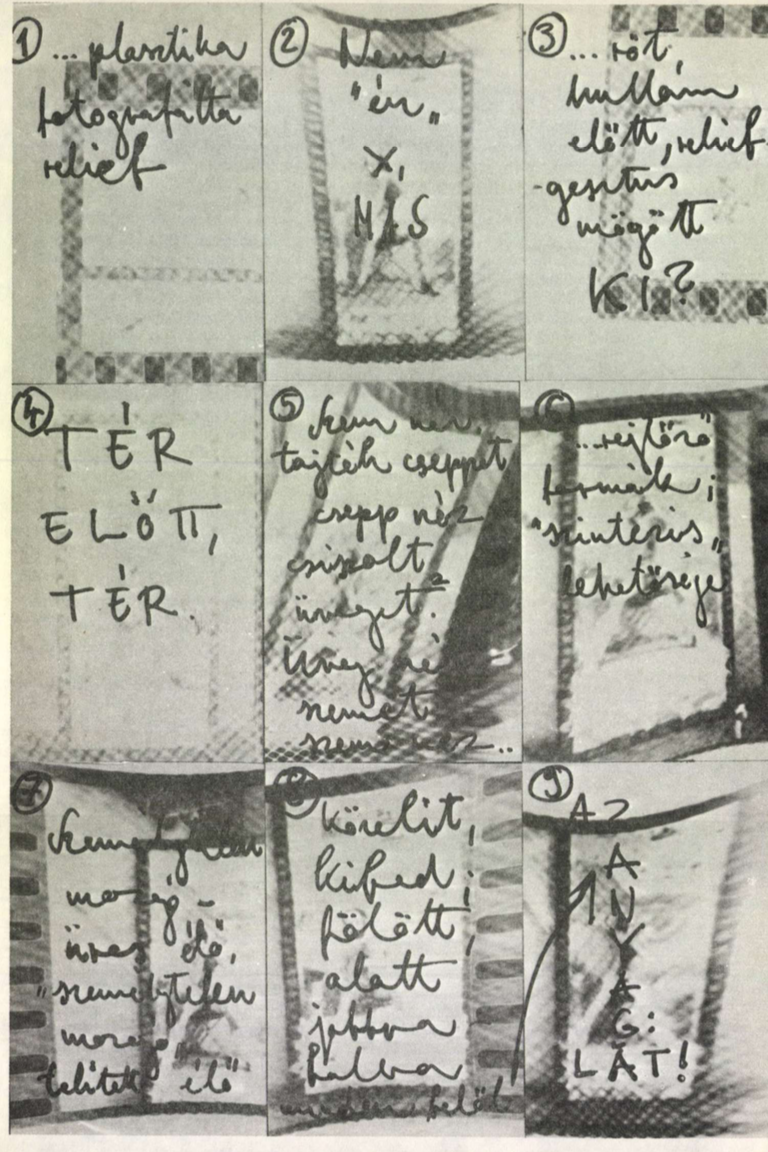 1
... plasztika
fotografálta
relief
2
Nem
"én„
X,
MÁS
3
... röt,
hullám
előtt, relief
-gesztus
mögött
KI?
4
TÉR
ELŐTT,
TÉR.
5
Szem néz.
tajték cseppet
csepp néz
csiszolt
üveget?
Üveg né
szemet
szem néz..
6
...rejtőző"
formák;
"szintézis„
lehetősége
7
mozgó-
üres élő,
"személytelen
mozgó
telített élő"
8
közelít,
kifed;
fölött,
alatt
jobbra
balra
minden felől
9
AZ
A
N
Y
A
G:
LÁT!